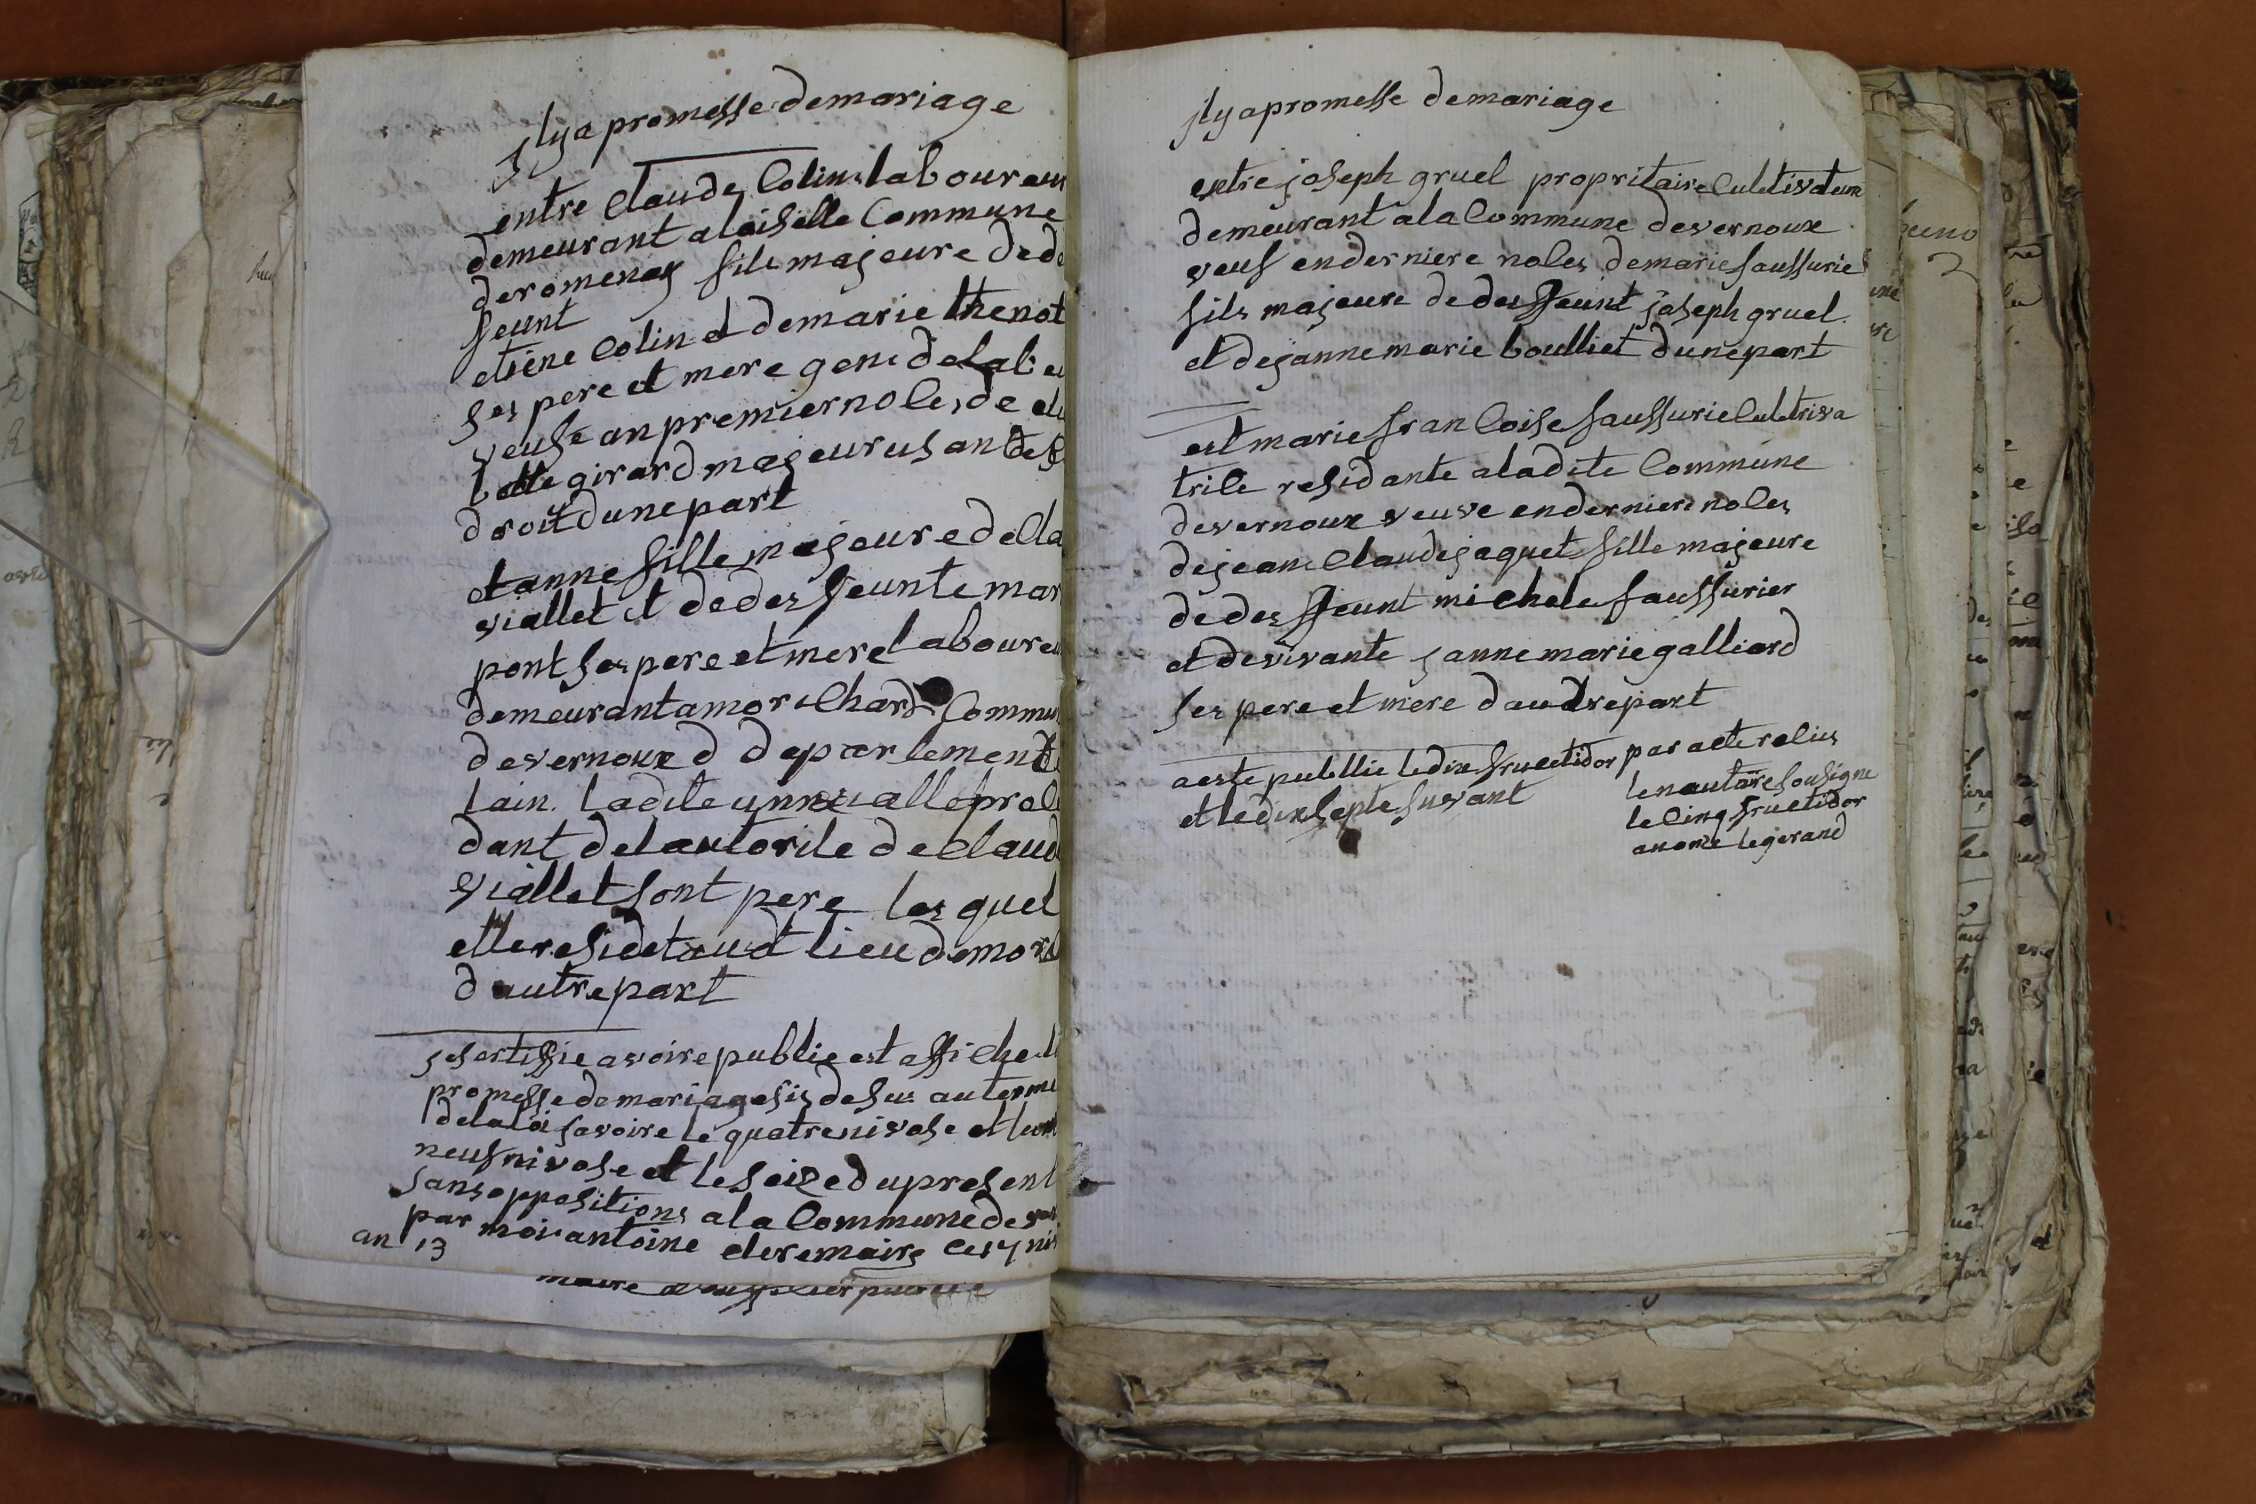 jl y a promesse de mariage
entre Claude Colin laboureur
demeurant a loiselle Commune
de romenay fils majeure de de
feunt
etiene Colin et de marie thenot
ses pere et mere gens de lab
veufe an premier noces de
girard majeur usant de s
droit dune part
et anne fille majeure de Cla
viallet et de deffeunte mar
pont ses pere et mere laboureu
demeurant a morichard Commu
de vernoux d departement
lain. ladite anne viallet prose
dant de lautorite de Claud
viallet sont pere les quel
elle reside audt lieu de mori
dautre part
je sertiffie avoire publie est affiche
promesse de mariage sis desus au terme
de la loi savoire le quatre nivose et le
neuf nivose et le seize du present
sans oppositions a la Commune de ver
par moi antoine clere maire ce 17 niv
an 13
jl y a promesse de mariage
entre joseph gruel propritaire Culetivateure
demeurant a la Commune de vernoux
veuf en derniere noces de marie saussurie
fils majeure de deffeunt joseph gruel
et de janne marie boulliet dune part
est marie francoise saussurie Culetriva
trise residante a ladite Commune
de vernoux veuve en derniere noces
de jean Claude jaquet fille majeure
de deffeunt michele saussurier
et de vivante janne marie galliard
ses pere et mere dautre part
a este publlie le dix fruectidor
et le dix septe suivant
par acte resus
le nautaire sousigne
le Cinq fructidor
an onze legerand